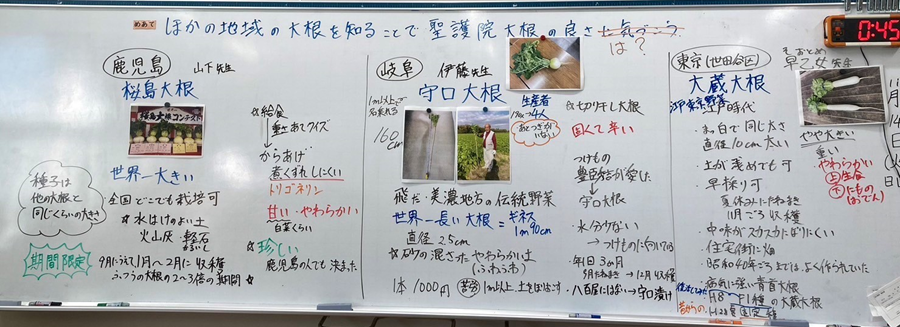 めあて
ほかの地域の大根を知ることで聖護院大根の良さに気づこう
は？
0:45
鹿児島
山下先生
桜島大根
桜島大根コンテスト
世界一大きい
種子は
他の大根と
同じくらいの大きさ
全国どこでも栽培可
☆水はけのよい土
火山灰・軽石
かるいし
期間限定
9月にうえて1月〜2月に収穫
ふつうの大根の2〜3倍の期間
☆給食
重さあてクイズ
からあげ
煮くずれしにくい
トリゴネリン
甘い・やわらかい
白菜くらい
☆珍しい
鹿児島の人でも
岐阜
伊藤先生
守口大根
1m以上で
160
cm
生産者
4人
あとつぎが
いない
飛だ・美濃地方の伝統野菜
世界一長い大根＝ギネス
1m90cm
直径2.5cm
☆砂の混ざったやわらかい土
(ふわふわ)
1本1000円
1m以上、土をほりおこす
☆切り干し大根
固くて辛い
つけもの
豊臣秀吉が愛した
守口大根
・水分が少ない
→つけものに向いてる
・年1回
9月たねまき→12月収穫
・八百屋にはない→守口漬け
東京(世田谷区)
そおとめ
早乙女先生
大蔵大根
江戸時代
・まっ白で同じ太さ
直径10cm太い
・土が浅めでも可
・早採り可
夏休みにたねまき
11月ごろ収穫
・中味がスカスカになりにくい
・住宅街に畑
・昭和40年ごろまでは、よく作られていた
・病気に強い青首大根
H8〜F1種の大蔵大根
昔からの
やや大きい
重い
やわらかい
上生食
下にもの